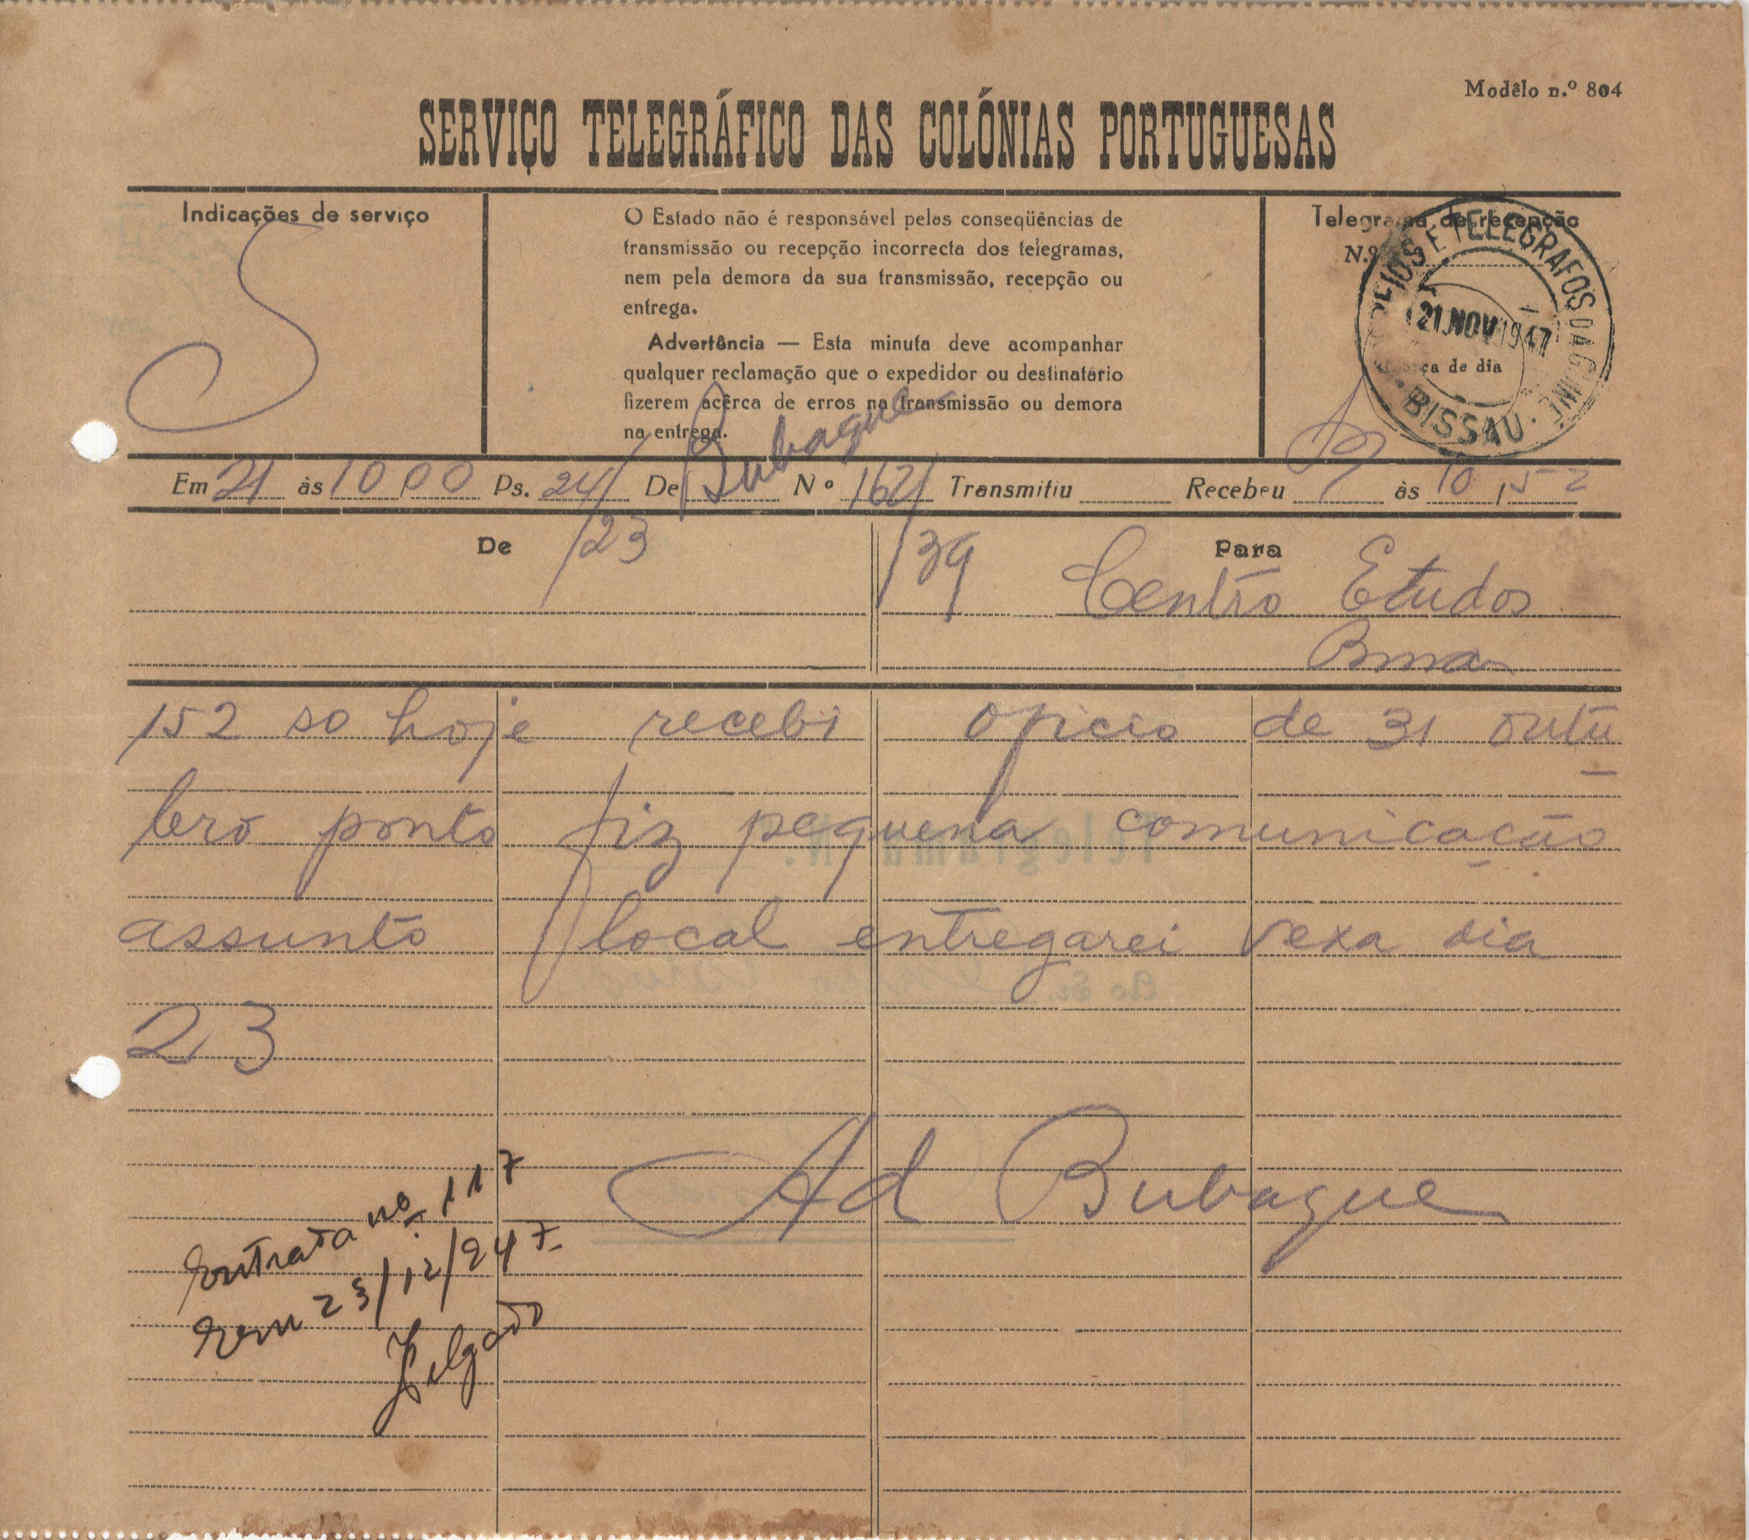 Modêlo n.º 804
SERVIÇO TELEGRÁFICO DAS COLÓNIAS PORTUGUESAS
Indicações de serviço
S
O Estado não é responsável pelas conseqüências de
transmissão ou recepção incorrecta dos telegramas,
nem pela demora da sua transmissão, recepção ou
entrega.
Advertência — Esta minuta deve acompanhar
qualquer reclamação que o expedidor ou destinatário
fizerem acêrca de erros na transmissão ou demora
na entrega.
Telegrama de recepção
N.º
CORREIOS E TELEGRAFOS DA GUINÉ
21.NOV 1947
de dia
BISSAU
Em 21 às 10 00 Ps. 24/ De Bubaque Nº 162/ Transmitiu Recebeu às 10,52
De /23 /39 Para
Centro Etudos
152 so hoje recebi oficio de 31 outu
bro ponto fiz pequena comunicacão
assunto local entregarei vexa dia
23
Ad Bubaque
Entrada nº 117
Em 23/12/947